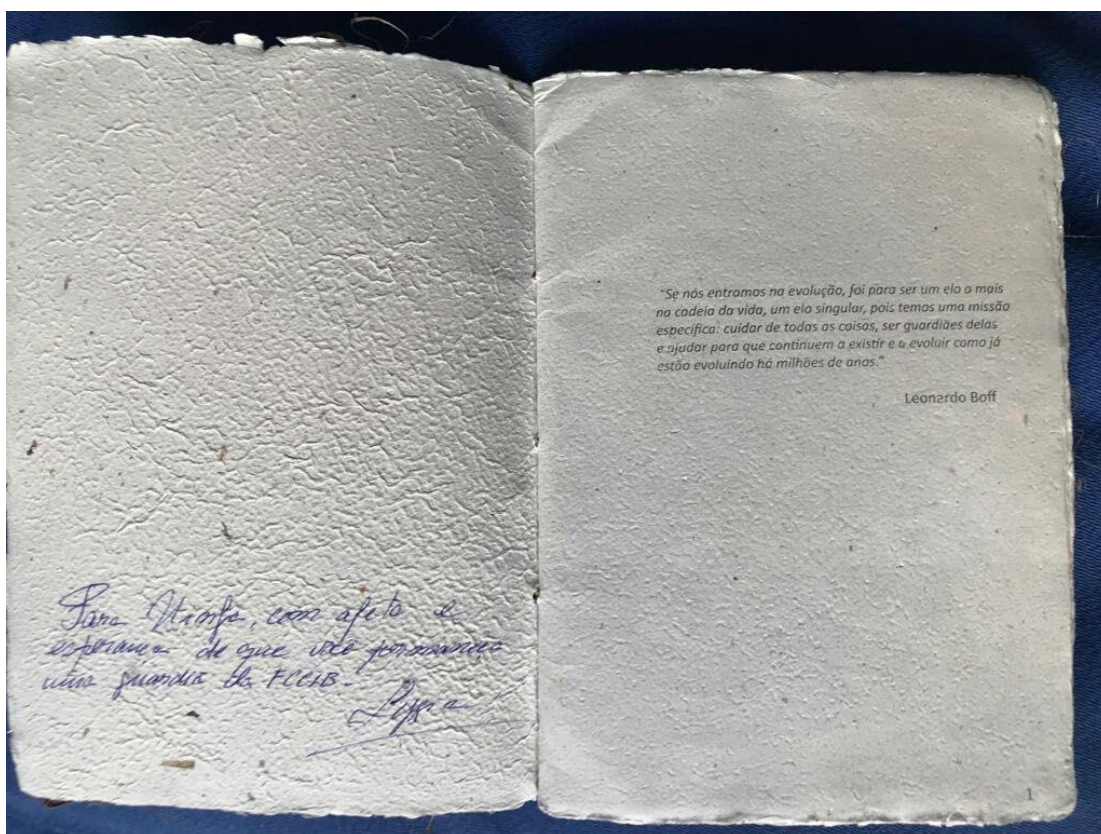 Para            , com afeto e
esperança de que você permaneça
uma guardiã da FCCIB.
"Se nós entramos na evolução, foi para ser um elo a mais
na cadeia da vida, um elo singular, pois temos uma missão
específica: cuidar de todas as coisas, ser guardiães delas
e ajudar para que continuem a existir e a evoluir como já
estão evoluindo há milhões de anos."
Leonardo Boff
1